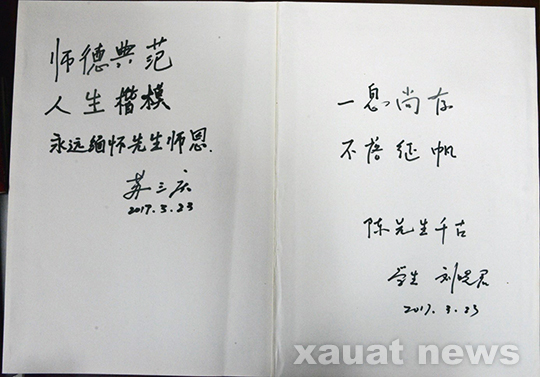 师德典范
人生楷模
永远缅怀先生师恩.
苏三庆
2017.3.23
一息尚存
不落征帆
陈先生千古
学生 刘晓君
2017.3.23
xauat news